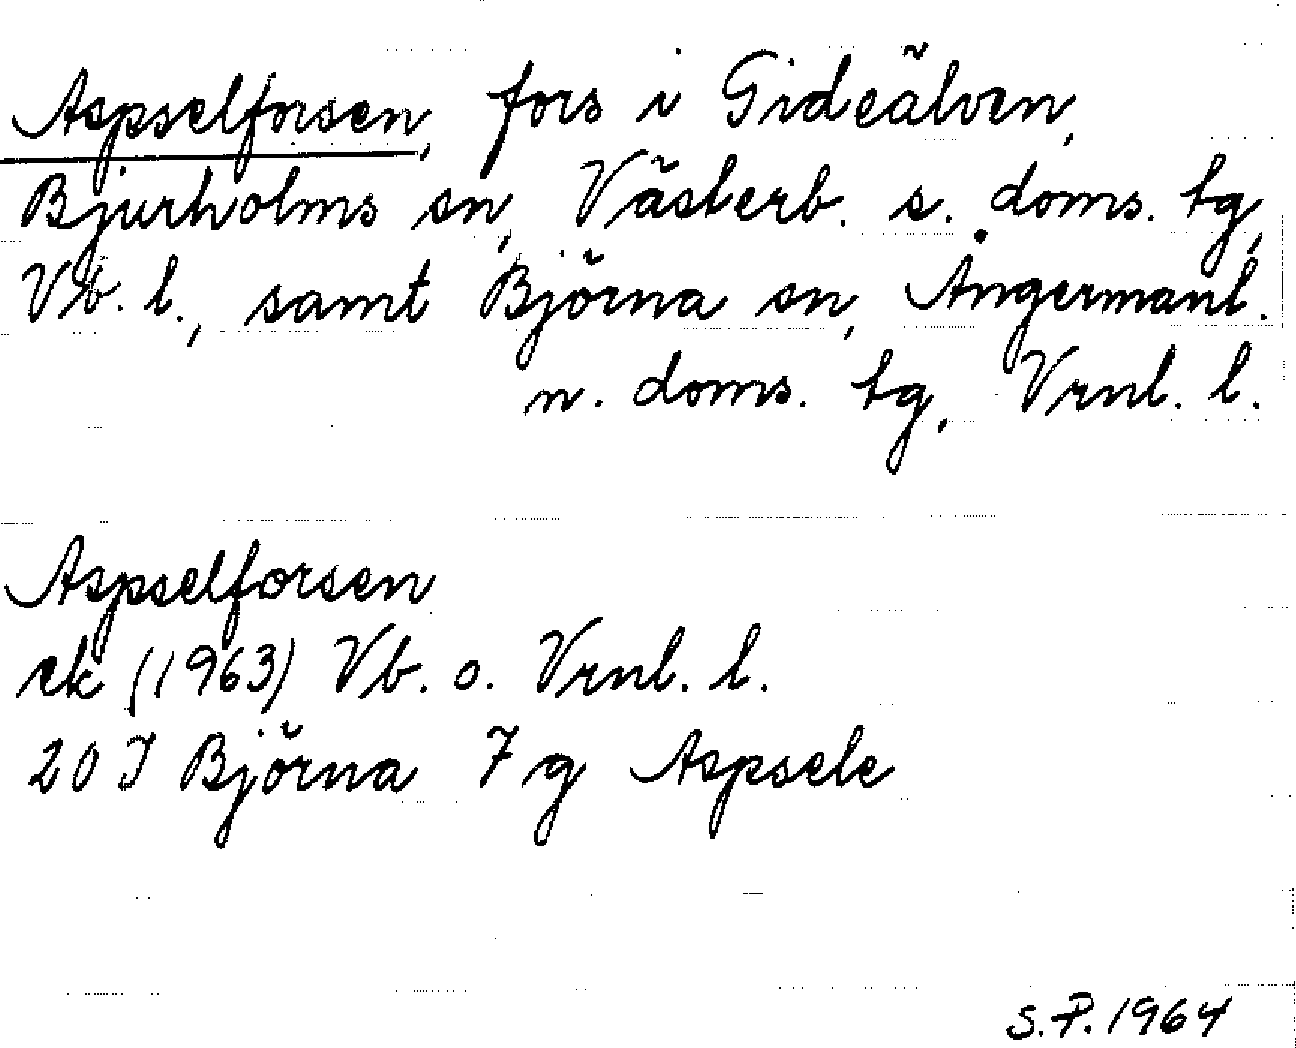 Aspselforsen, fors i Gideälven,
Bjurholms sn, Västerb. s. doms. tg,
Vb. l., samt Björna sn, Ångermanl.
n. doms. tg, Vrnl. l.
Aspselforsen
ek (1963) Vb. o. Vrnl. l.
20 J Björna 7 g Aspsele
S.P. 1964